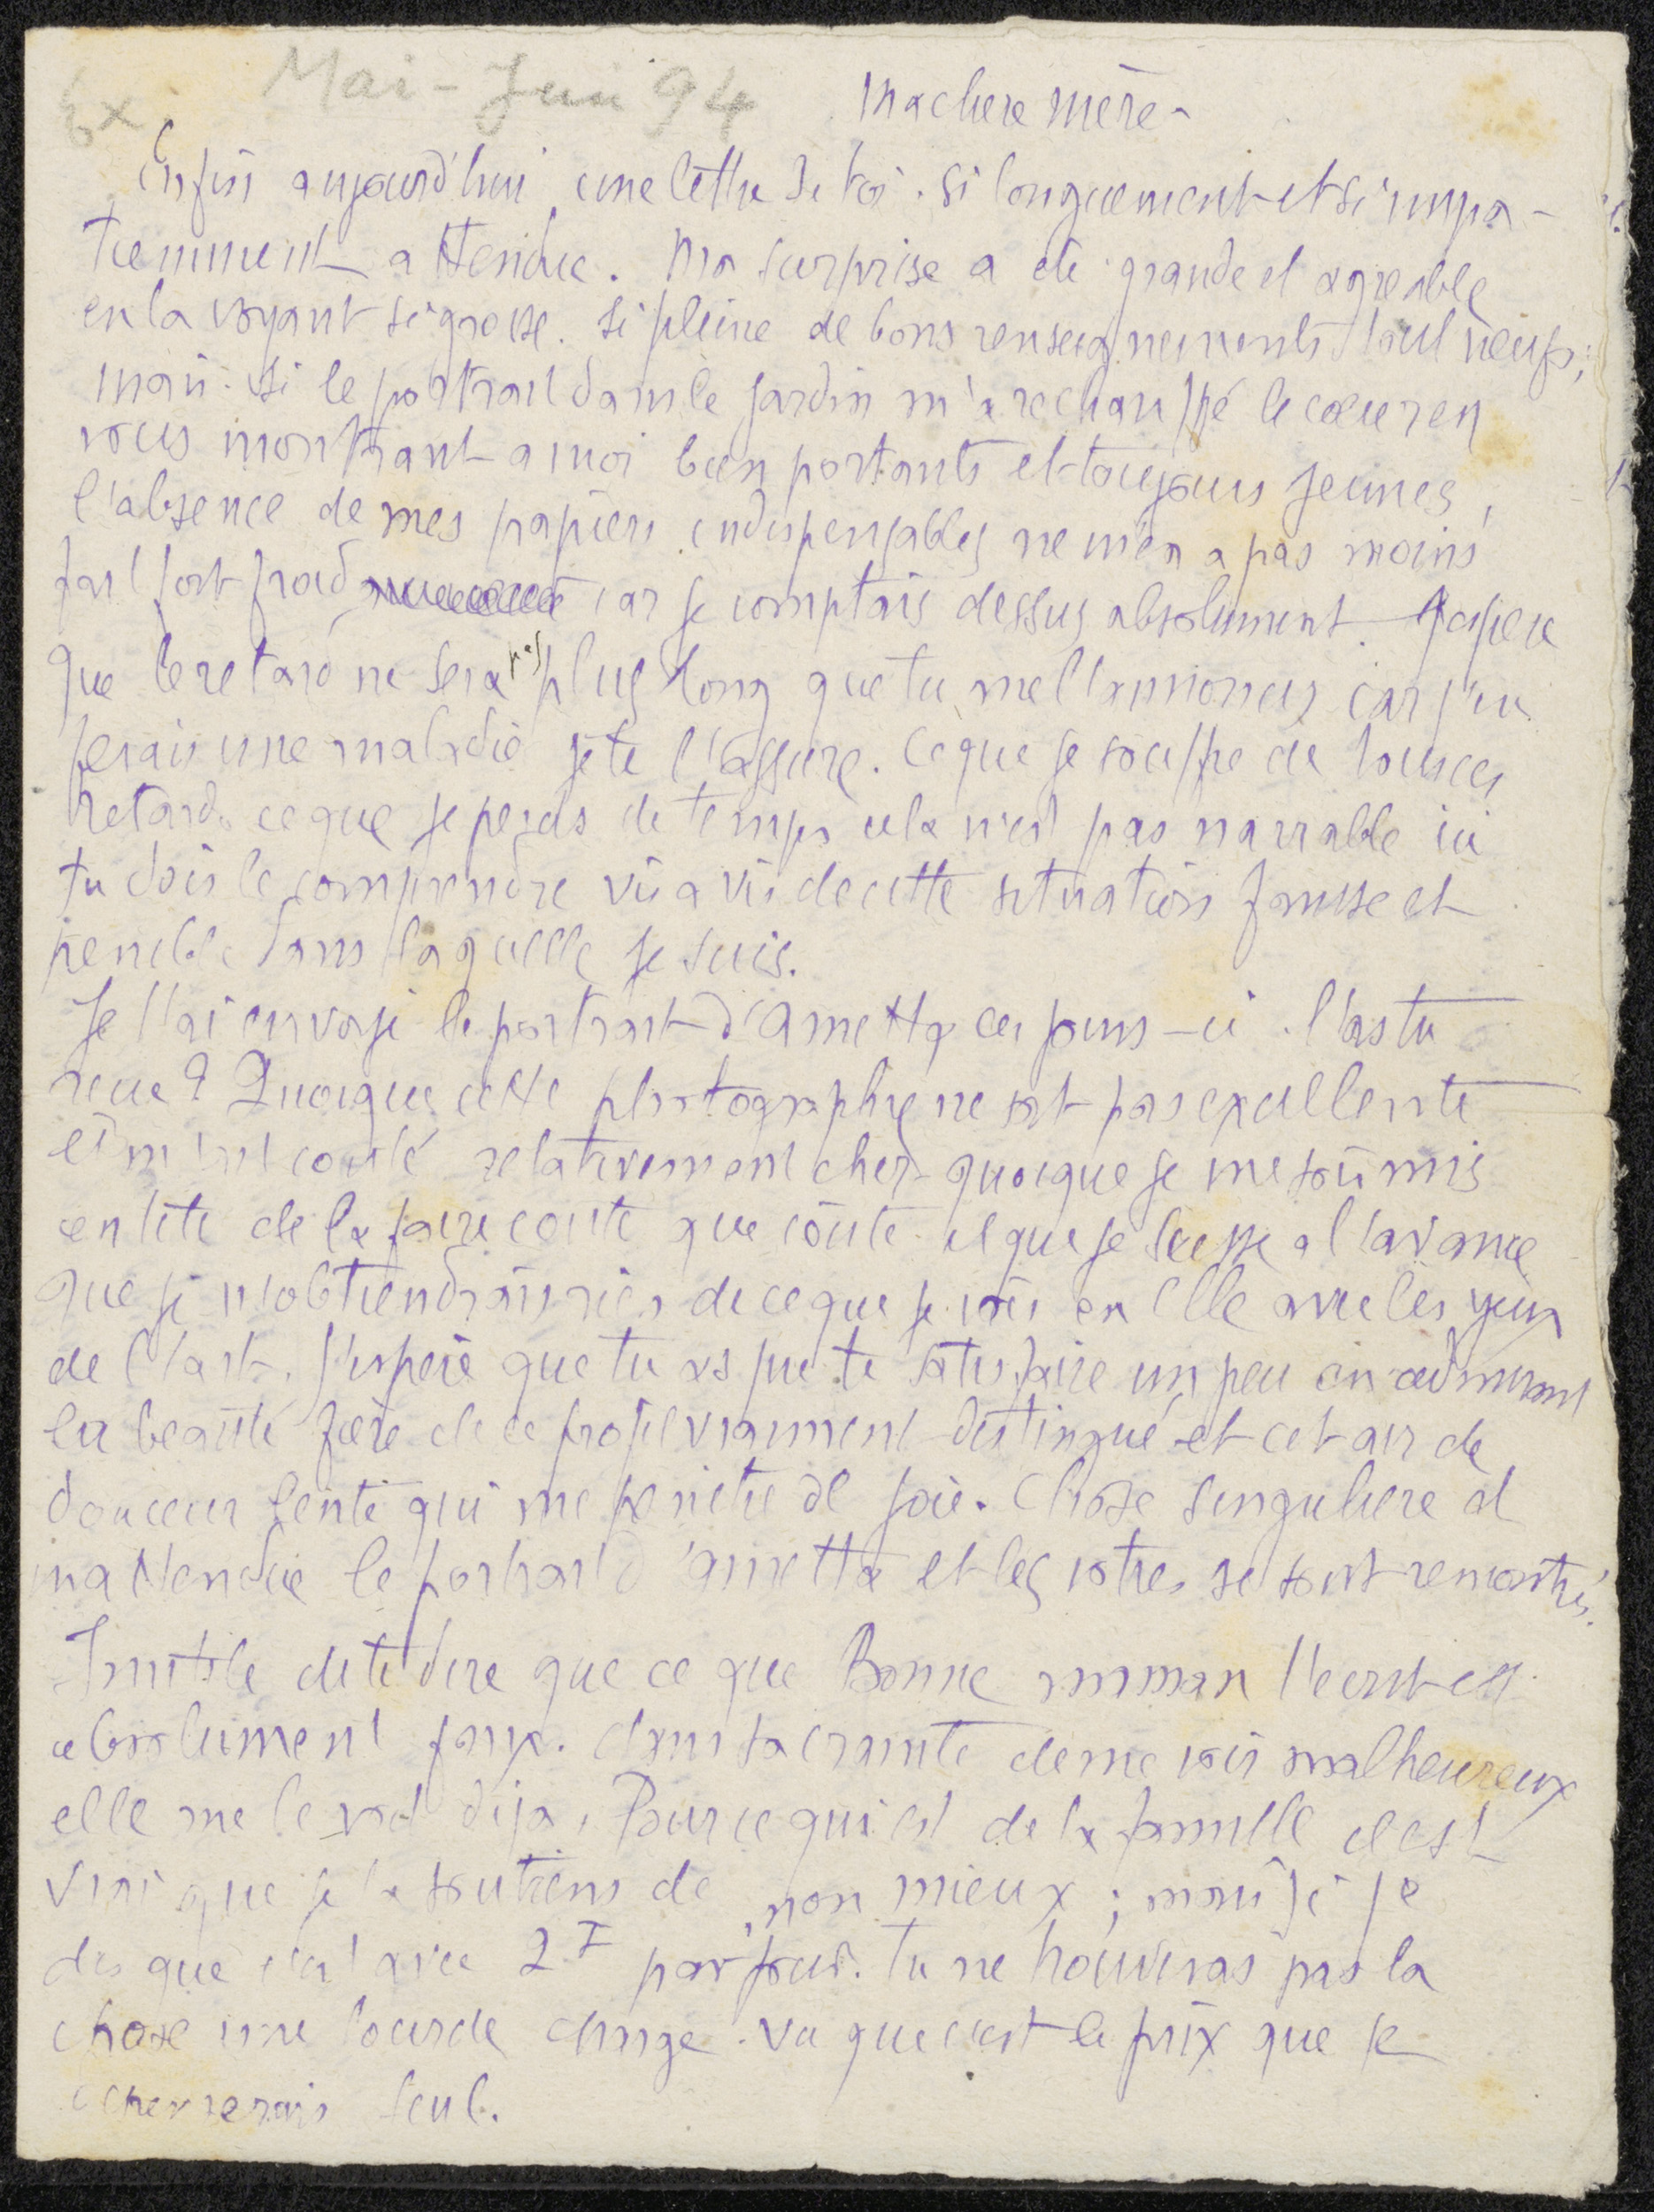 6x Mai - Juin 94
Ma chere mère -
Enfin aujourd'hui, une lettre de toi. si longuement et si impa-
tiemment attendue. Ma surprise a ete grande et agreable
en la voyant si grosse. si pleine de bons renseignements tout neufs;
mais. si le portrait dans le jardin m'a rechauffé le cœur en
vous montrant a moi bien portants et toujours jeunes,
l'absence de mes papiers indispensables ne m'en a pas moins
fait fort froid car je comptais dessus absolument. J'espere
que le retard ne sera pas plus long que tu me l'annonces car j'en
ferais une maladie je te l'assure. Ce que je souffre de tous ces
retards ce que je perds de temps cela n'est pas narrable ici
tu dois le comprendre vis a vis de cette situation fausse et
penible dans laquelle je suis.
Je t'ai envoye le portrait d'Ametta ces jours-ci. l'as tu
recue? Quoique cette photographie ne soit pas excellente
et m'ait couté relativement cher quoique je me sois mis
en tete de la faire coute que coute et que je susse a l'avance
que je n'obtiendrais rien de ce que je vois en elle avec les yeux
de l'art. j'espere que tu as pu te satisfaire un peu en admirant
la beauté fière de ce profil vraiment distingué et cet air de
douceur lente qui me penetre de joie. Chose singuliere et
inattendue le portrait d'ametta et les votres se sont rencontrés.
Inutile de te dire que ce que Bonne maman t'ecrit est
absolument faux. dans sa crainte de me voir malheureux
elle me le voit deja. Pour ce qui est de la famille il est
vrai que je la soutiens de mon mieux; mais si je
dis que c'est avec 2F par jour. tu ne trouveras pas la
chose une lourde charge. vu que c'est le prix que je
seul.